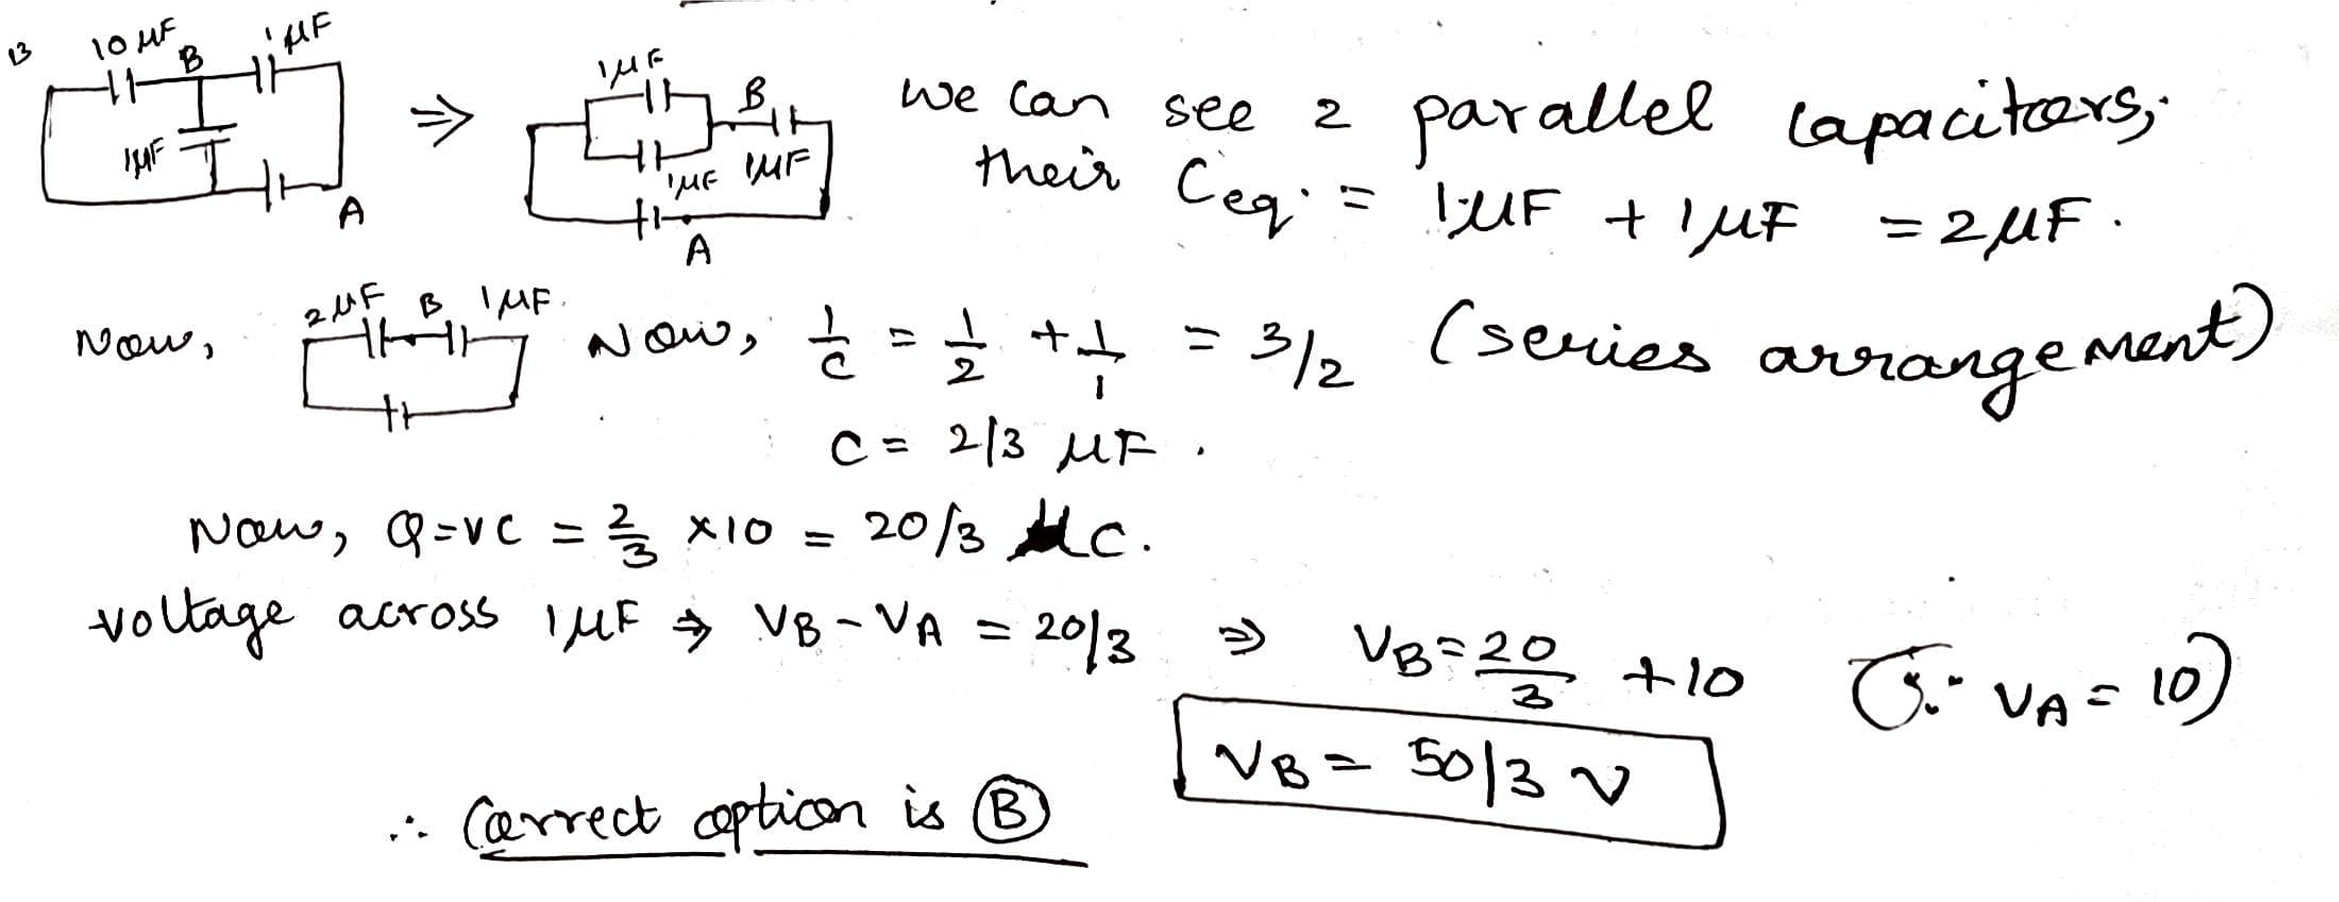 13 10 μF B 1 μF
1μF
A
⇒
1μF B
1μF 1μF
A
we can see 2 parallel capacitors,
their Ceq. = 1μF + 1μF = 2μF.
Now, 2μF B 1μF. Now, 1/C = 1/2 + 1/1 = 3/2 (series arrangement)
C = 2/3 μF.
Now, Q=VC = 2/3 ×10 = 20/3 μC.
voltage across 1μF → VB - VA = 20/3 ⇒ VB = 20/3 +10 (∵ VA = 10)
VB = 50/3 V
∴ Correct option is B